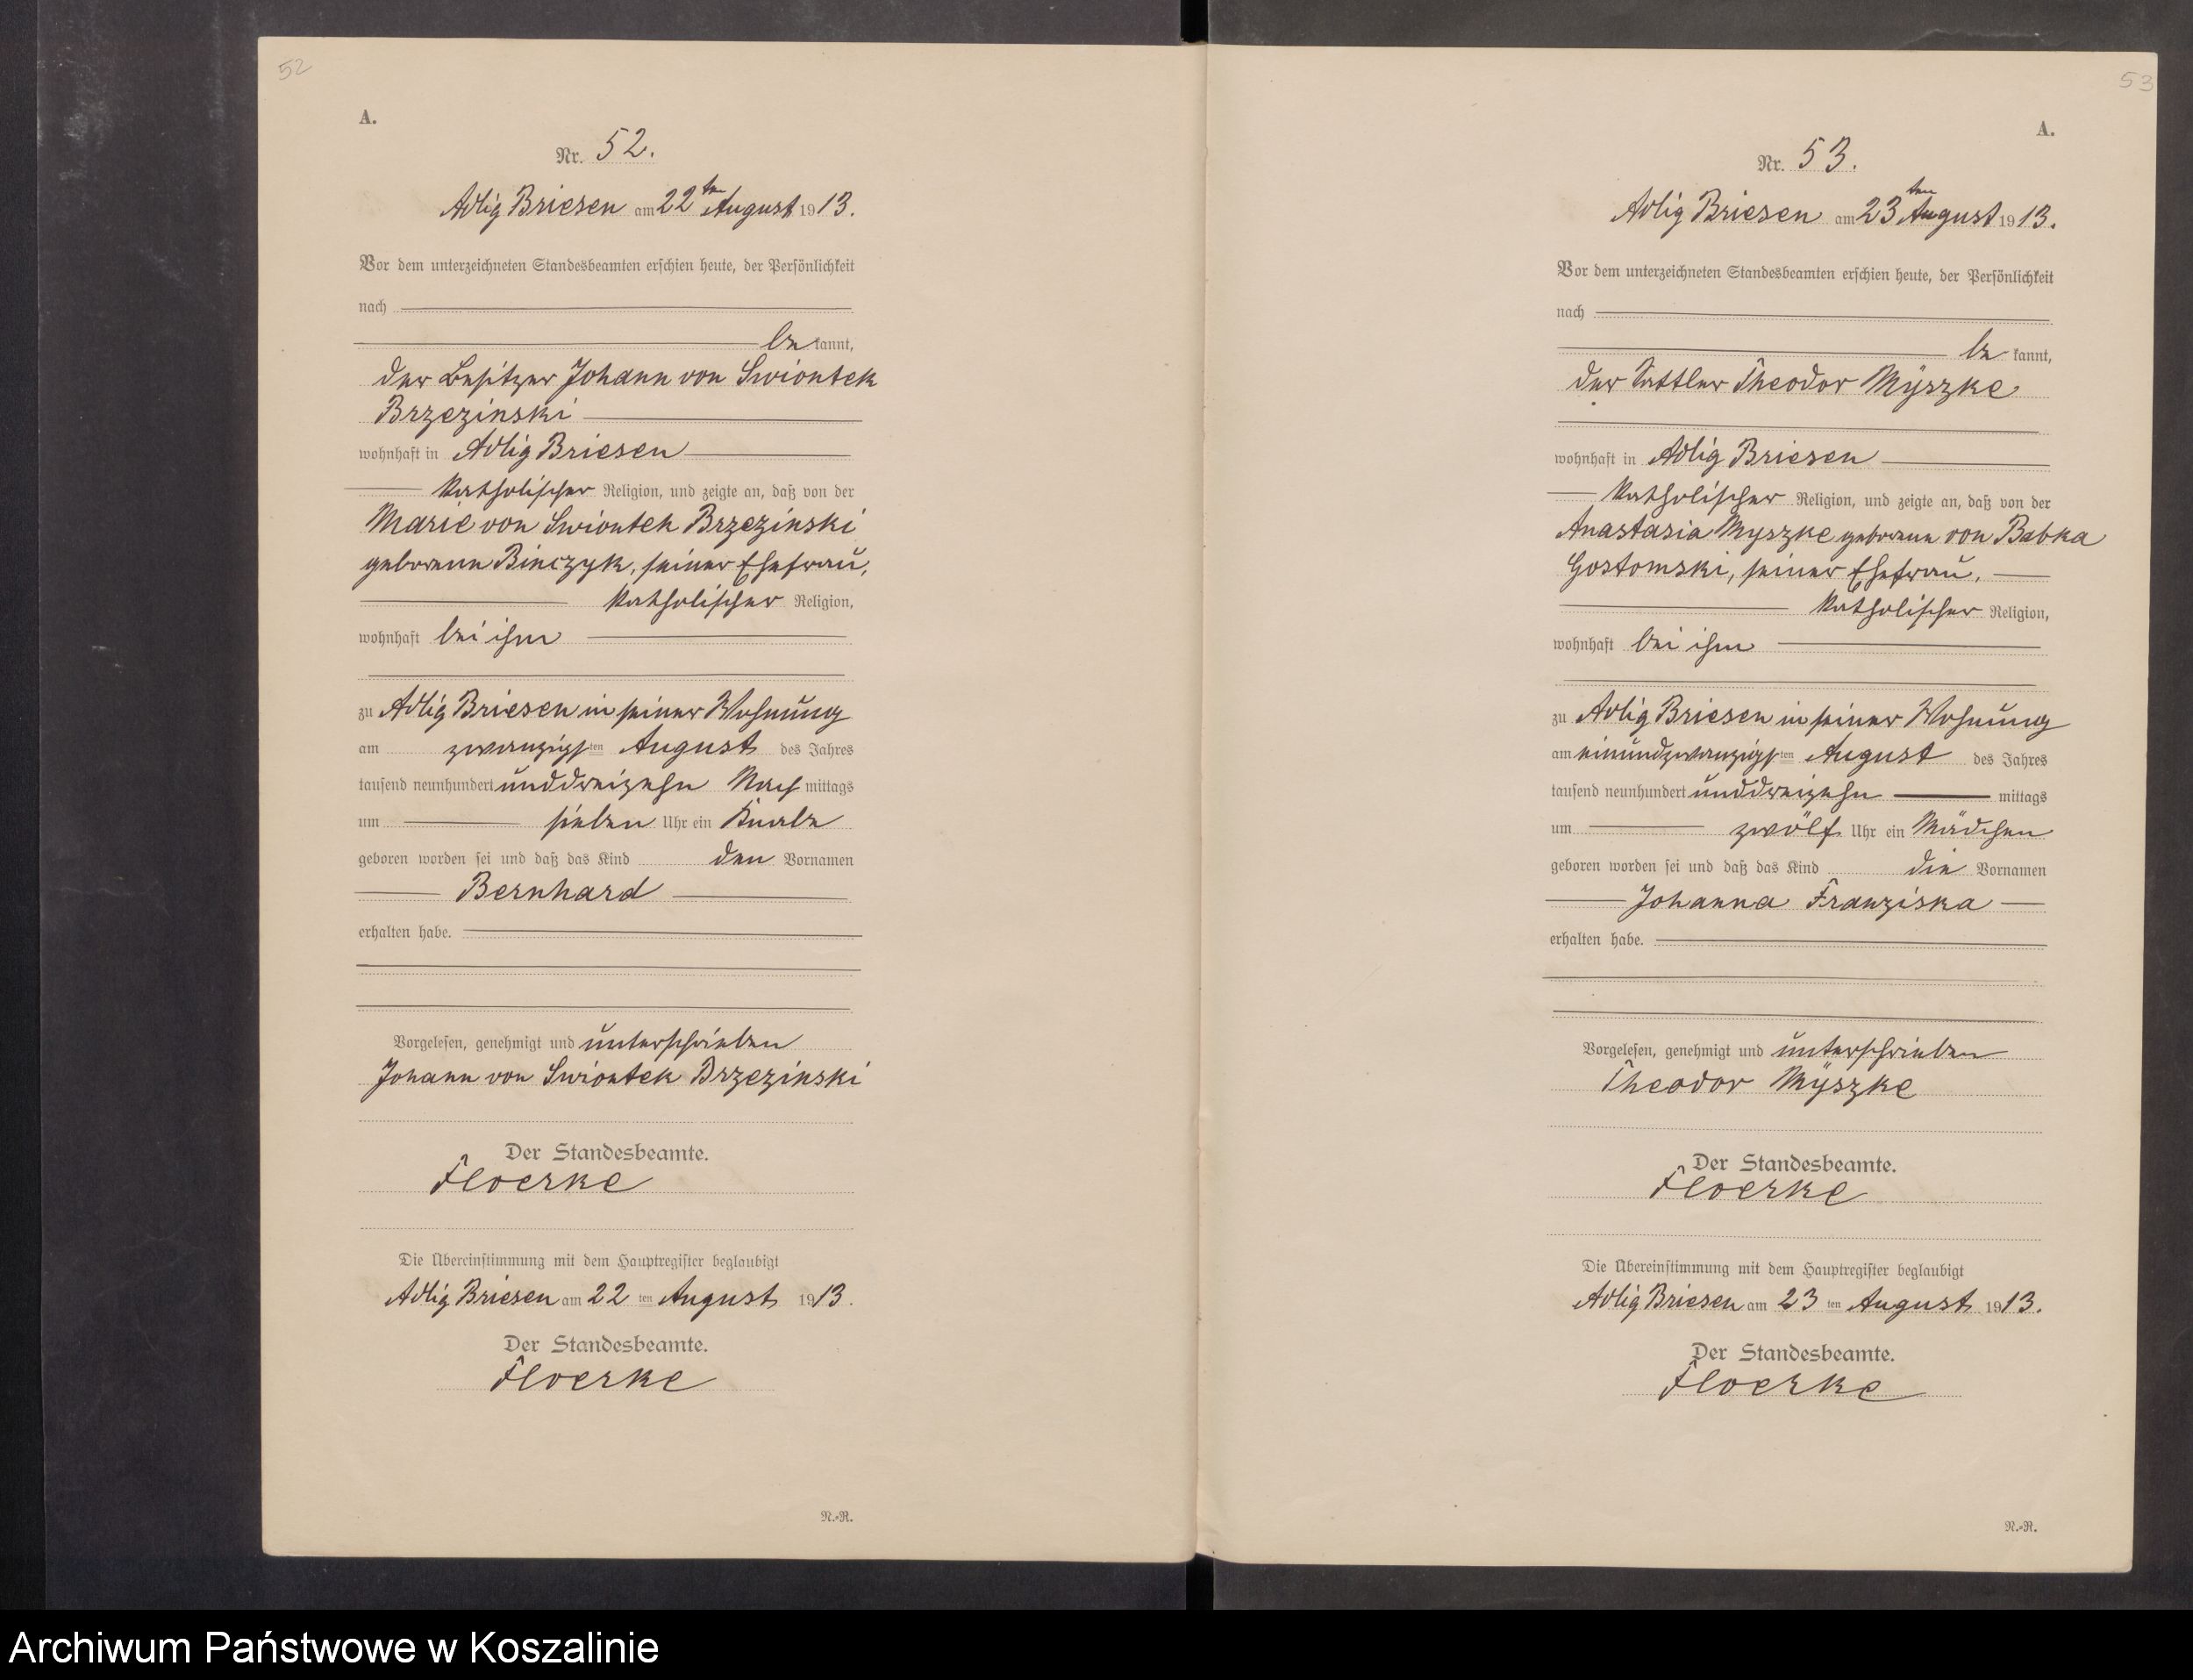 52
A.
Nr. 52.
Adlig Briesen am 22ten August 1913.
Vor dem unterzeichneten Standesbeamten erschien heute, der Persönlichkeit
nach
be kannt,
der Besitzer Johann von Swiontek
Brzezinski
wohnhaft in Adlig Briesen
katholischer Religion, und zeigte an, daß von der
Marie von Swiontek Brzezinski
geborene Binczyk, seiner Ehefrau,
katholischer Religion,
wohnhaft bei ihm
zu Adlig Briesen in seiner Wohnung
am zwanzigsten August des Jahres
tausend neunhundert unddreizehn Nach mittags
um sieben Uhr ein Knabe
geboren worden sei und daß das Kind den Vornamen
Bernhard
erhalten habe.
Vorgelesen, genehmigt und unterschrieben
Johann von Swiontek Brzezinski
Der Standesbeamte.
Floerke
Die Übereinstimmung mit dem Hauptregister beglaubigt
Adlig Briesen am 22 ten August 1913.
Der Standesbeamte.
Floerke
N.-R.
53
A.
Nr. 53.
Adlig Briesen am 23ten August 1913.
Vor dem unterzeichneten Standesbeamten erschien heute, der Persönlichkeit
nach
be kannt,
der Sattler Theodor Myszke
wohnhaft in Adlig Briesen
katholischer Religion, und zeigte an, daß von der
Anastasia Myszke geborene von Babka
Gostomski, seiner Ehefrau,
katholischer Religion,
wohnhaft bei ihm
zu Adlig Briesen in seiner Wohnung
am einundzwanzigsten August des Jahres
tausend neunhundert unddreizehn mittags
um zwölf Uhr ein Mädchen
geboren worden sei und daß das Kind die Vornamen
Johanna Franziska
erhalten habe.
Vorgelesen, genehmigt und unterschrieben
Theodor Myszke
Der Standesbeamte.
Floerke
Die Übereinstimmung mit dem Hauptregister beglaubigt
Adlig Briesen am 23 ten August 1913.
Der Standesbeamte.
Floerke
N.-R.
Archiwum Państwowe w Koszalinie